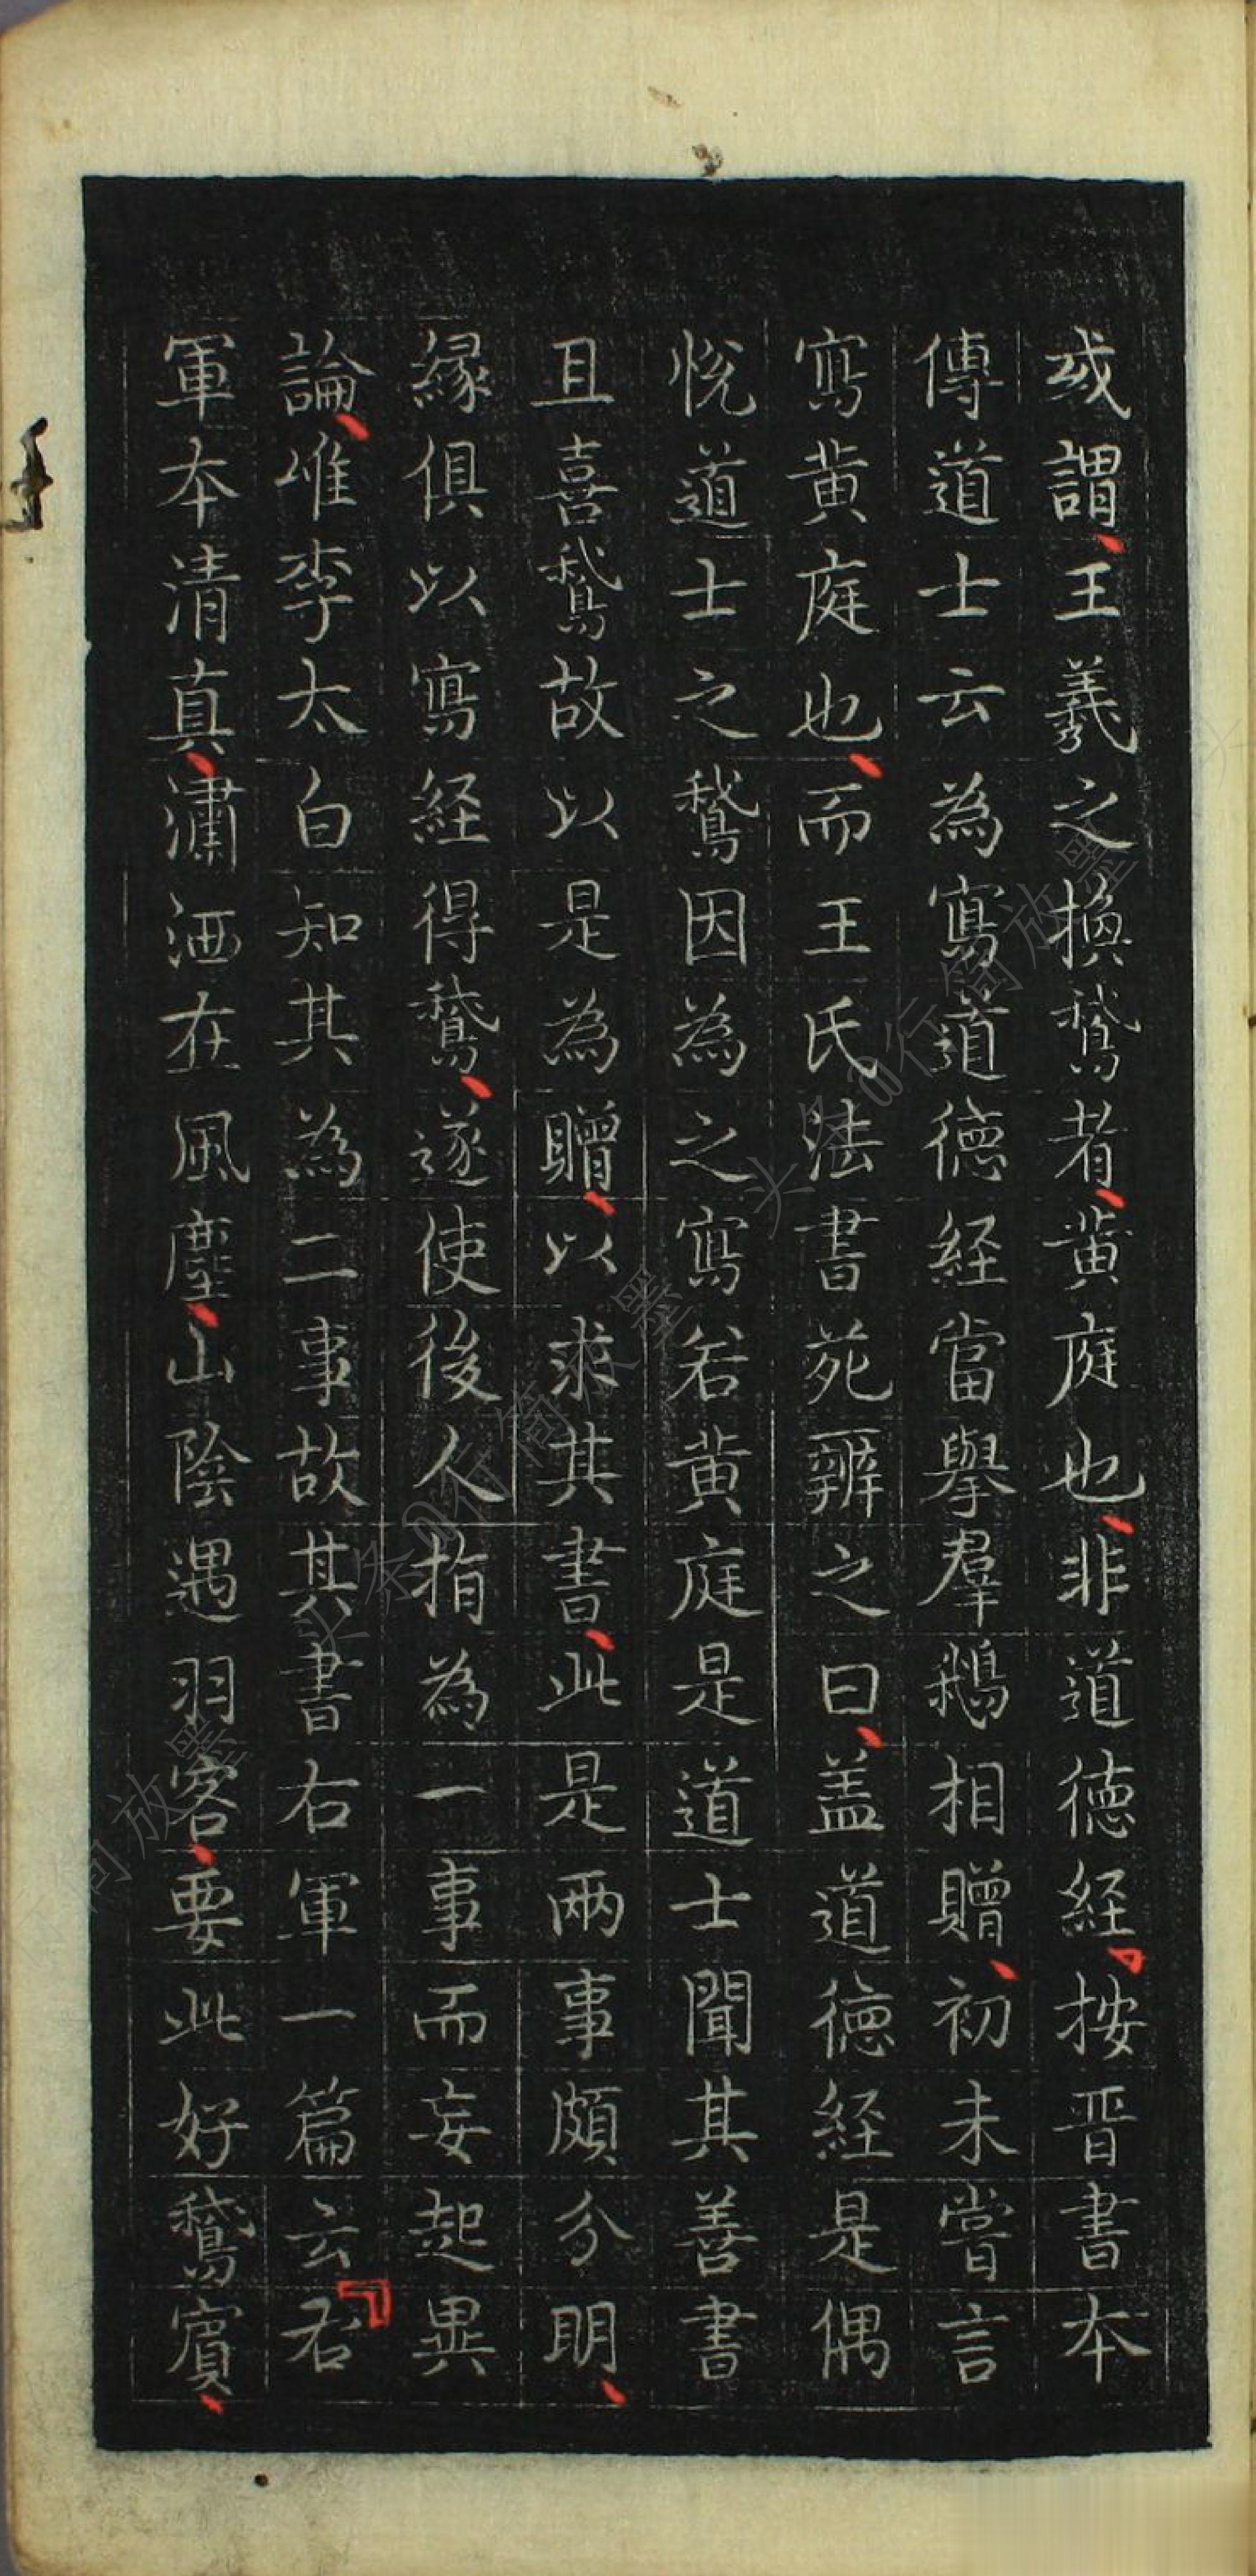 或謂王羲之換鵞者黄庭也非道德経按晋書本
傳道士云為寫道德経當舉羣鵝相贈初未嘗言
寫黄庭也而王氏法書苑辨之曰盖道德経是偶
悅道士之鵞因為之寫若黄庭是道士聞其善書
且喜鵞故以是為贈以求其書此是兩事頗分明
縁俱以寫経得鵞遂使後人指為一事而妄起異
論唯李太白知其為二事故其書右軍一篇云右
軍本清真瀟洒在風塵山陰遇羽客要此好鵞賓
头条@行简放墨
头条@行简放墨
行简放墨